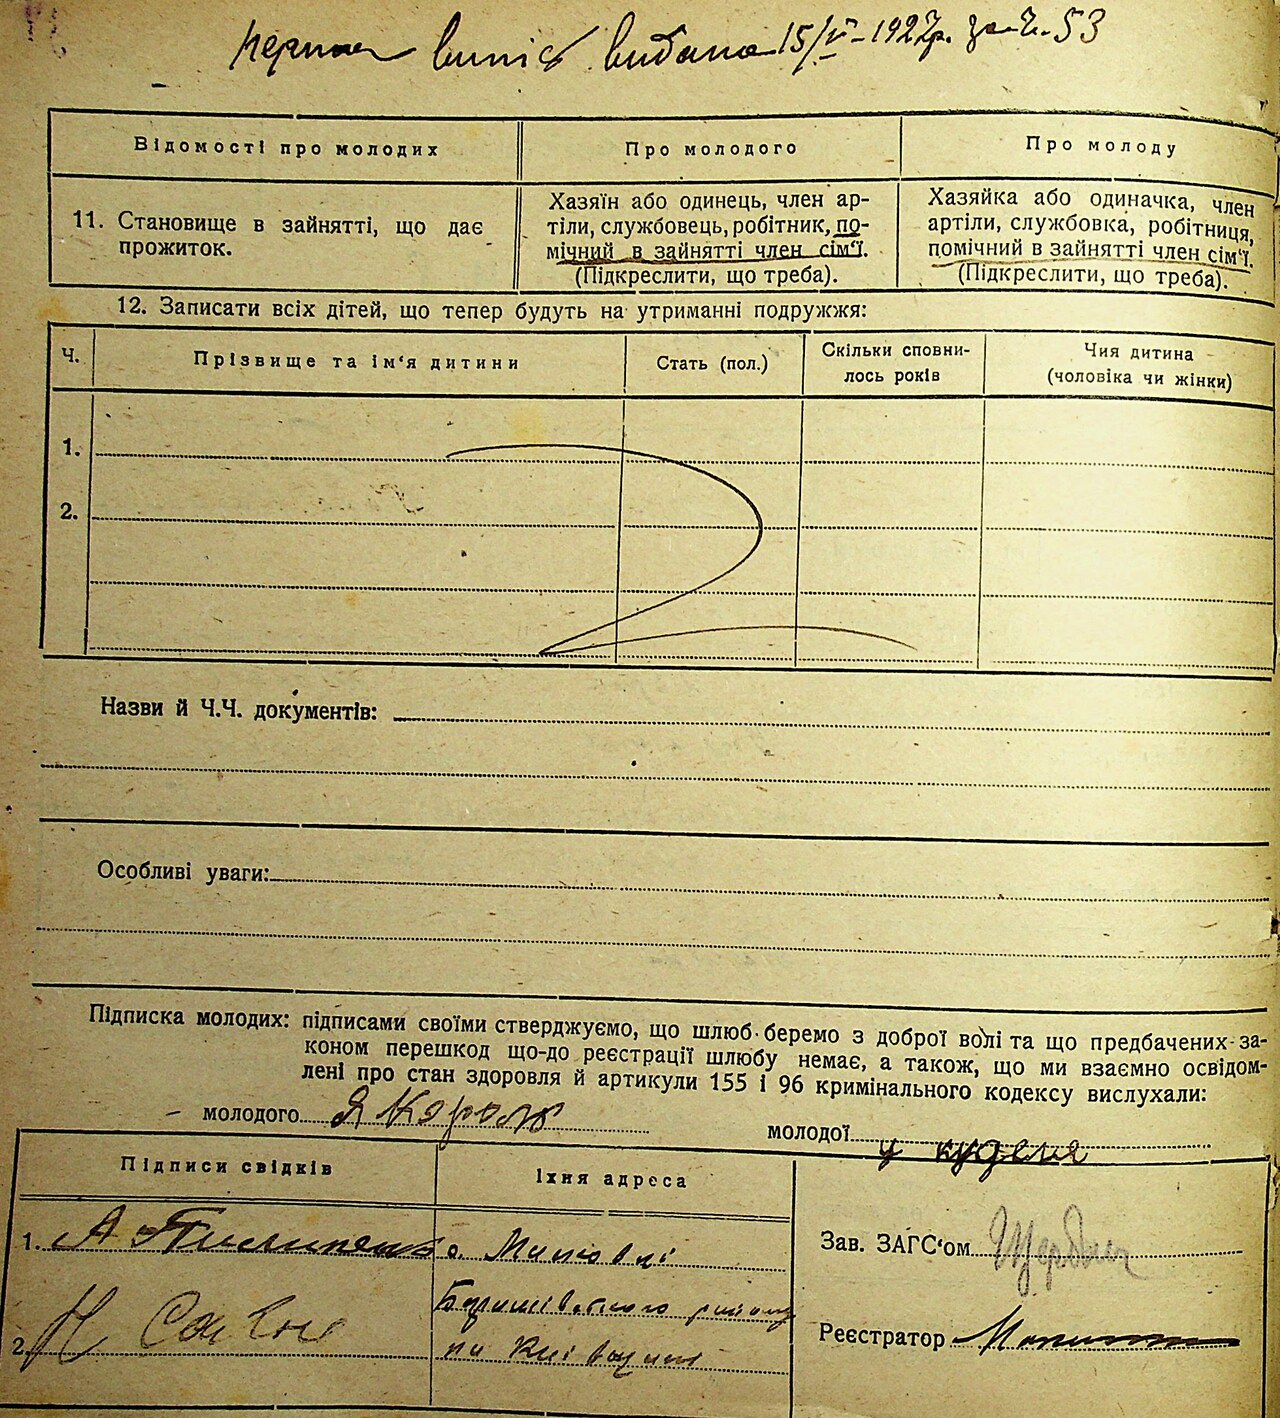 випис видана 15/V-1927р. за Ч. 53
Відомості про молодих
Про молодого
Про молоду
11. Становище в зайнятті, що дає
прожиток.
Хазяїн або одинець, член ар-
тіли, службовець, робітник, по-
мічний в зайнятті член сім'ї.
(Підкреслити, що треба).
Хазяйка або одиначка, член
артіли, службовка, робітниця,
помічний в зайнятті член сім'ї.
(Підкреслити, що треба).
12. Записати всіх дітей, що тепер будуть на утриманні подружжя:
Ч.
Прізвище та ім'я дитини
Стать (пол.)
Скільки сповни-
лось років
Чия дитина
(чоловіка чи жінки)
1.
2.
Назви й Ч.Ч. документів:
Особливі уваги:
Підписка молодих: підписами своїми стверджуємо, що шлюб беремо з доброї волі та що предбачених за-
коном перешкод що-до реєстрації шлюбу немає, а також, що ми взаємно освідом-
лені про стан здоровля й артикули 155 і 96 кримінального кодексу вислухали:
молодого Я Король
молодої У куделя
Підписи свідків
Їхня адреса
1. А Пилипенко
с. Мирівці
Баришівського району
2. Н
на Київщині
Зав. ЗАГС'ом
Реєстратор